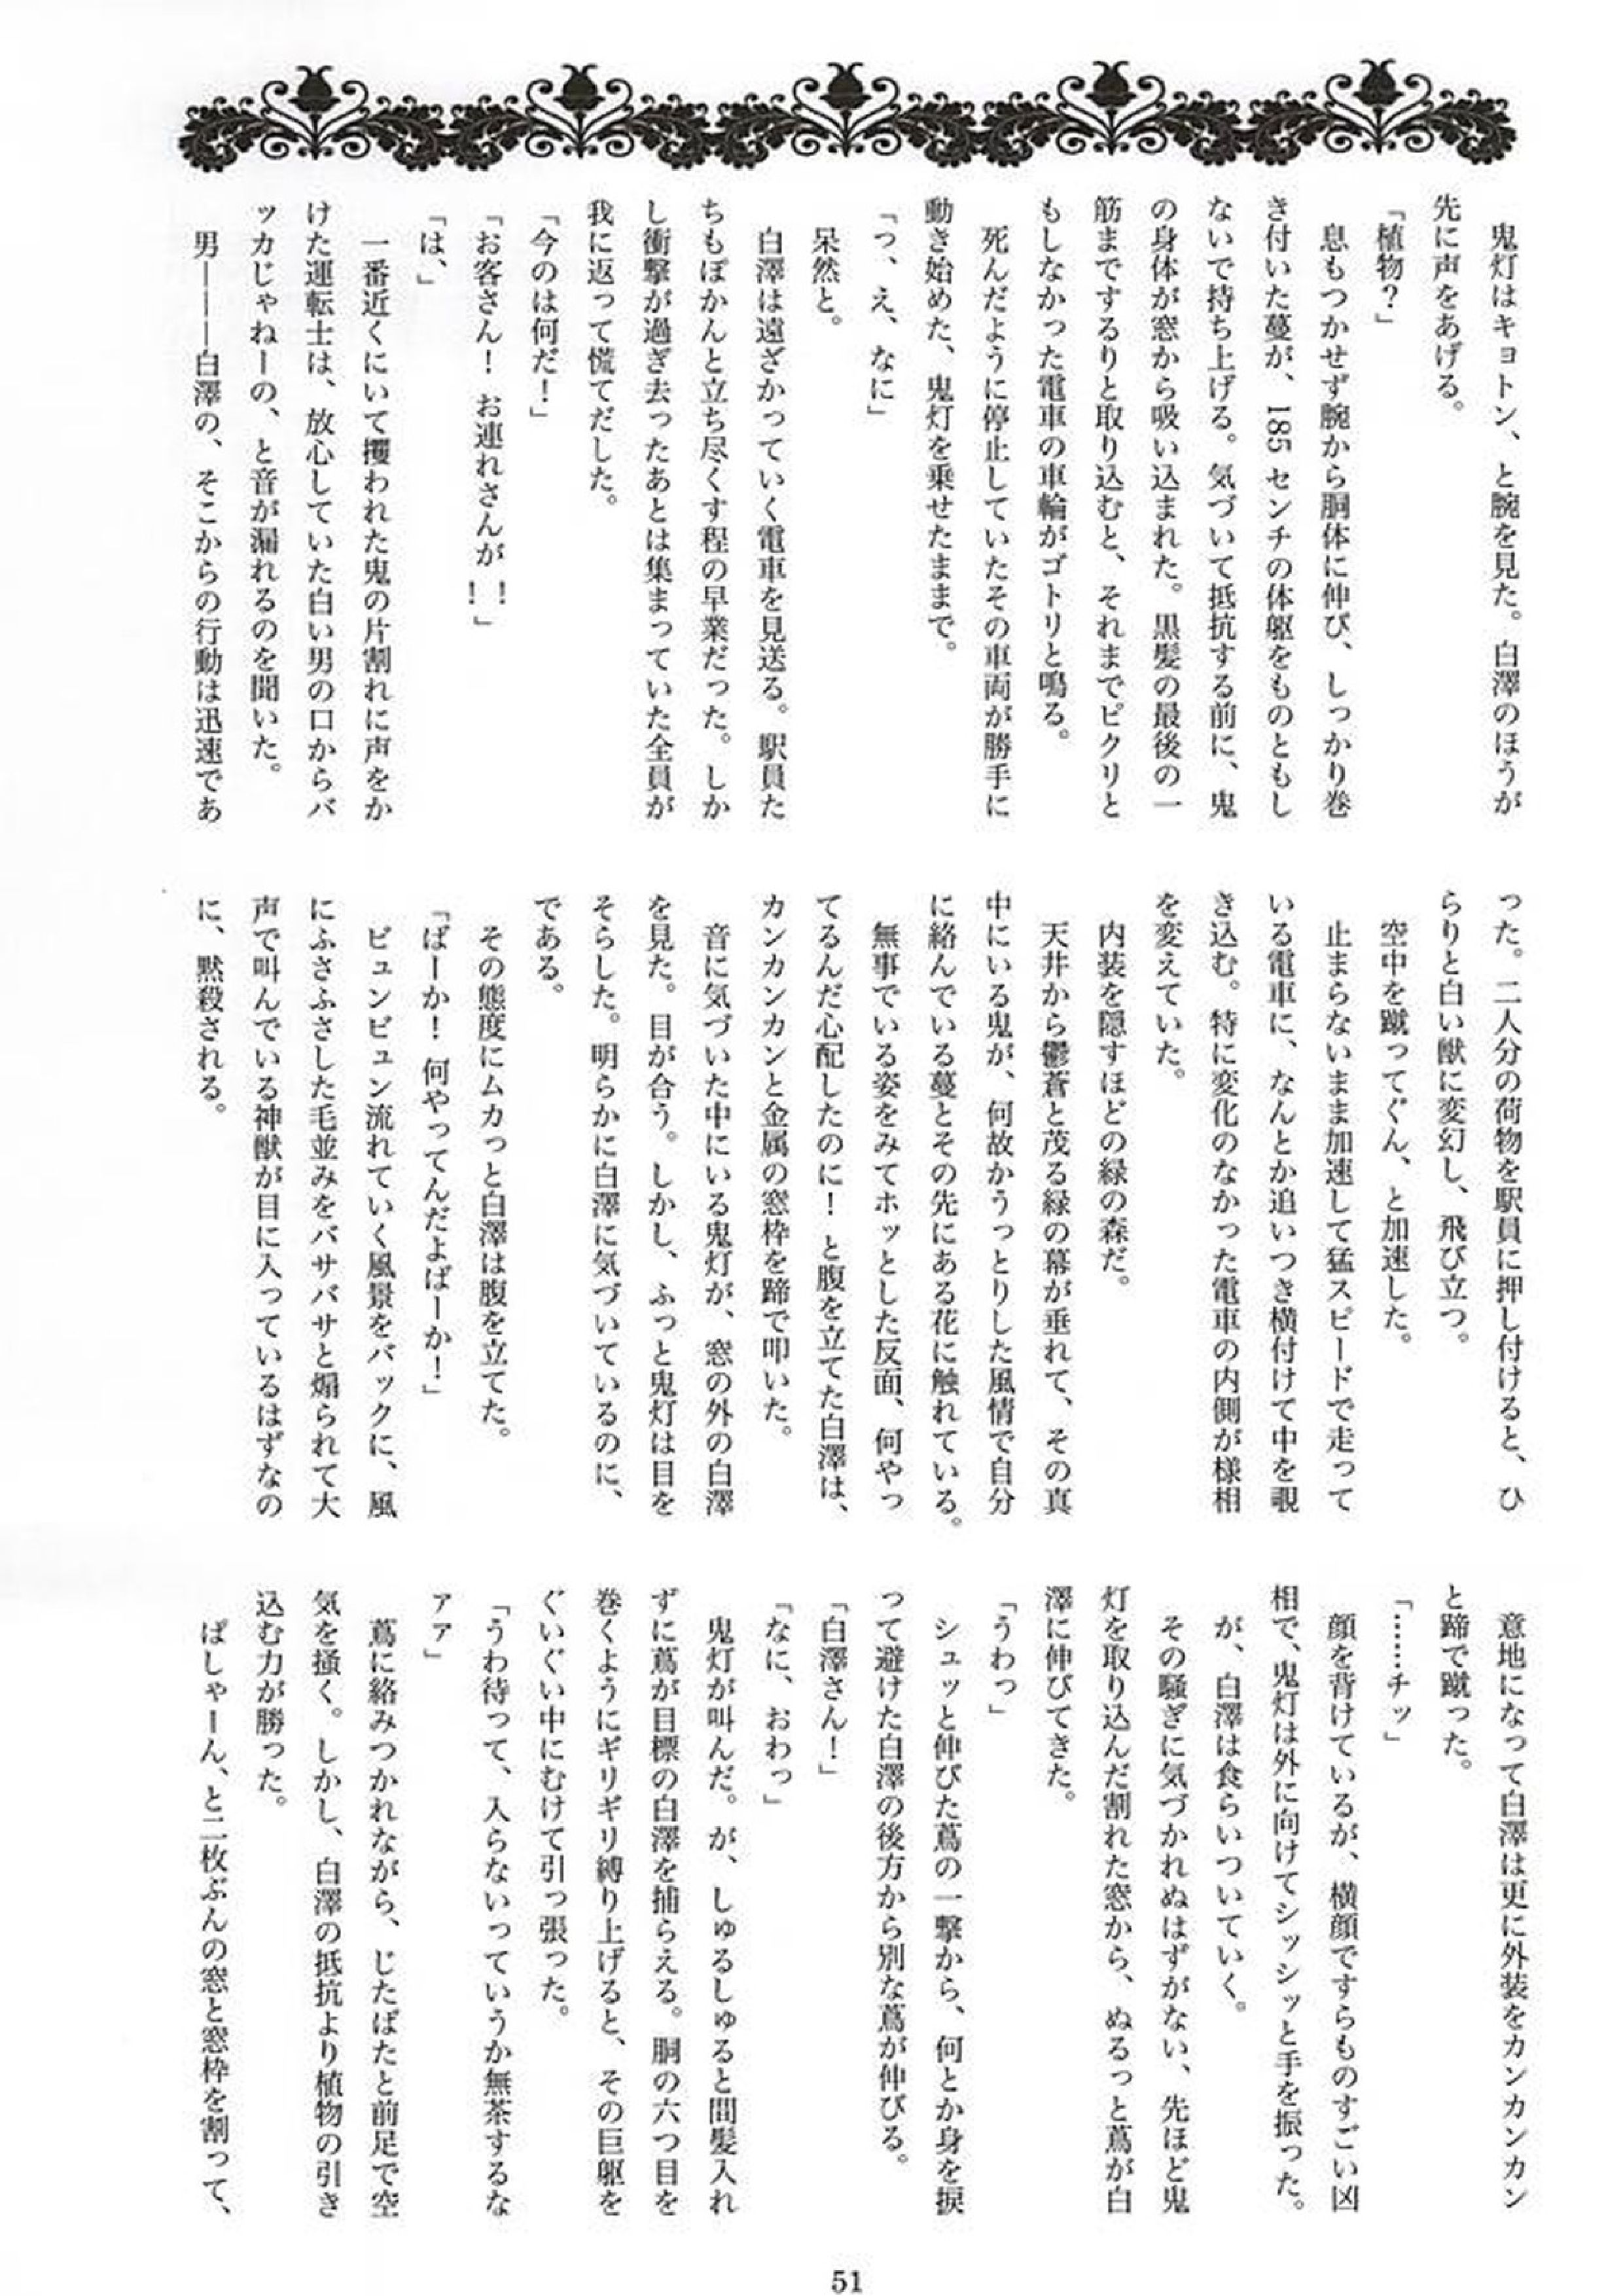 鬼灯はキョトン、と腕を見た。白澤のほうが
先に声をあげる。
「植物？」
息もつかせず腕から胴体に伸び、しっかり巻
き付いた蔓が、185 センチの体躯をものともし
ないで持ち上げる。気づいて抵抗する前に、鬼
の身体が窓から吸い込まれた。黒髪の最後の一
筋までするりと取り込むと、それまでピクリと
もしなかった電車の車輪がゴトリと鳴る。
死んだように停止していたその車両が勝手に
動き始めた、鬼灯を乗せたままで。
「っ、え、なに」
呆然と。
白澤は遠ざかっていく電車を見送る。駅員た
ちもぽかんと立ち尽くす程の早業だった。しか
し衝撃が過ぎ去ったあとは集まっていた全員が
我に返って慌てだした。
「今のは何だ！」
「お客さん！　お連れさんが！！」
「は、」
一番近くにいて攫われた鬼の片割れに声をか
けた運転士は、放心していた白い男の口からバ
ッカじゃねーの、と音が漏れるのを聞いた。
男―――白澤の、そこからの行動は迅速であ
った。二人分の荷物を駅員に押し付けると、ひ
らりと白い獣に変幻し、飛び立つ。
空中を蹴ってぐん、と加速した。
止まらないまま加速して猛スピードで走って
いる電車に、なんとか追いつき横付けて中を覗
き込む。特に変化のなかった電車の内側が様相
を変えていた。
内装を隠すほどの緑の森だ。
天井から鬱蒼と茂る緑の幕が垂れて、その真
中にいる鬼が、何故かうっとりした風情で自分
に絡んでいる蔓とその先にある花に触れている。
無事でいる姿をみてホッとした反面、何やっ
てるんだ心配したのに！　と腹を立てた白澤は、
カンカンカンと金属の窓枠を蹄で叩いた。
音に気づいた中にいる鬼灯が、窓の外の白澤
を見た。目が合う。しかし、ふっと鬼灯は目を
そらした。明らかに白澤に気づいているのに、
である。
その態度にムカっと白澤は腹を立てた。
「ばーか！　何やってんだよばーか！」
ビュンビュン流れていく風景をバックに、風
にふさふさした毛並みをバサバサと煽られて大
声で叫んでいる神獣が目に入っているはずなの
に、黙殺される。
意地になって白澤は更に外装をカンカンカン
と蹄で蹴った。
「……チッ」
顔を背けているが、横顔ですらものすごい凶
相で、鬼灯は外に向けてシッシッと手を振った。
が、白澤は食らいついていく。
その騒ぎに気づかれぬはずがない、先ほど鬼
灯を取り込んだ割れた窓から、ぬるっと蔦が白
澤に伸びてきた。
「うわっ」
シュッと伸びた蔦の一撃から、何とか身を捩
って避けた白澤の後方から別な蔦が伸びる。
「白澤さん！」
「なに、おわっ」
鬼灯が叫んだ。が、しゅるしゅると間髪入れ
ずに蔦が目標の白澤を捕らえる。胴の六つ目を
巻くようにギリギリ縛り上げると、その巨躯を
ぐいぐい中にむけて引っ張った。
「うわ待って、入らないっていうか無茶するな
ァァ」
蔦に絡みつかれながら、じたばたと前足で空
気を掻く。しかし、白澤の抵抗より植物の引き
込む力が勝った。
ばしゃーん、と二枚ぶんの窓と窓枠を割って、
51